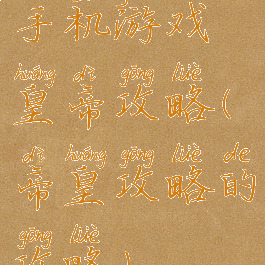 手机游戏
huáng dì gōng lüè
皇帝攻略(
dì huáng gōng lüè de
帝皇攻略的
gōng lüè
攻略)